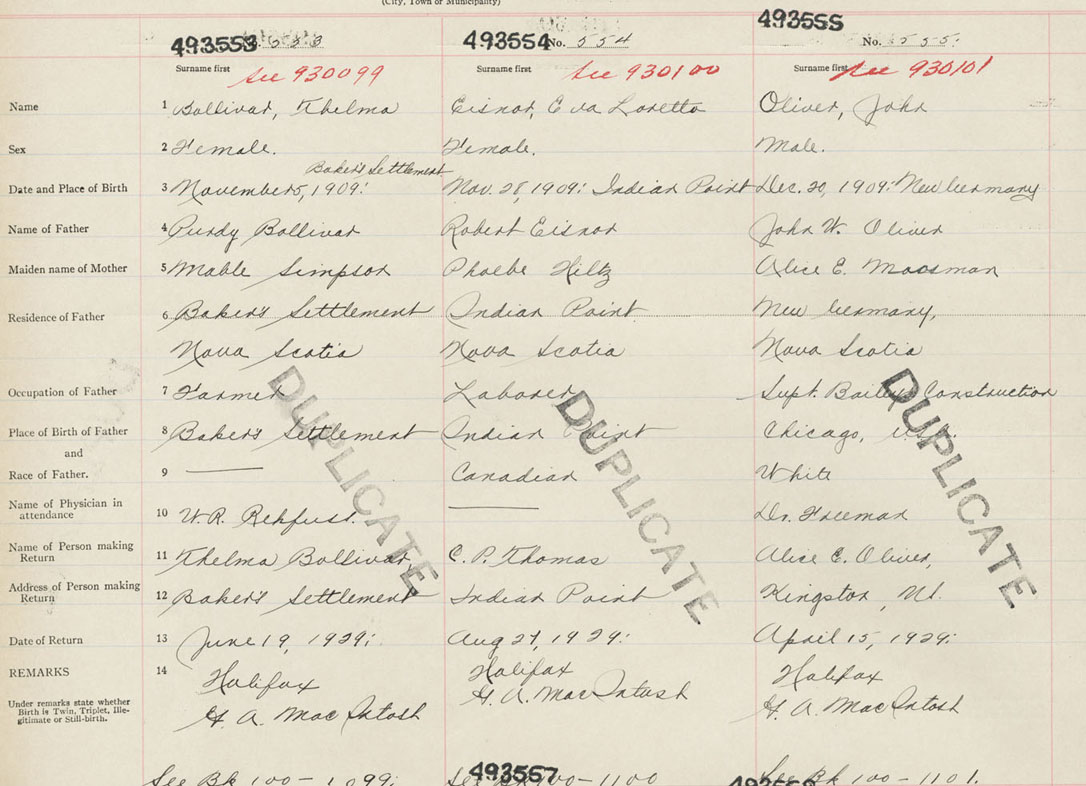 (City, Town or Municipality)
493553 No. 553 493554 No. 554 493555 No. 555
Surname first Surname first Surname first
See 930099 See 930100 See 930101
Name 1 Bollivar, Thelma Eisnor, Eva Loretto Oliver, John
Sex 2 Female. Female. Male.
Baker's Settlement
Date and Place of Birth 3 November 5, 1909: Nov. 28, 1909: Indian Point Dec. 20, 1909: New Germany
Name of Father 4 Purdy Bollivar Robert Eisnor John W. Oliver
Maiden name of Mother 5 Mable Simpson Phoebe Hiltz Alice E. Moosman
Residence of Father 6 Baker's Settlement Indian Point New Germany,
Nova Scotia Nova Scotia Nova Scotia
Occupation of Father 7 Farmer Laborer Supt. Construction
Place of Birth of Father 8 Baker's Settlement Indian Point Chicago, U.S.
and
Race of Father. 9 Canadian White
Name of Physician in
attendance 10 W.R. Dr. Freeman
Name of Person making
Return 11 Thelma Bollivar C. P. Thomas Alice E. Oliver,
Address of Person making
Return 12 Baker's Settlement Indian Point Kingston, N.S.
Date of Return 13 June 19, 1929: Aug 27, 1929: April 15, 1929:
REMARKS 14 Halifax Halifax Halifax
Under remarks state whether
Birth is Twin, Triplet, Ille-
gitimate or Still-birth.
G. A. MacIntosh G. A. MacIntosh G. A. MacIntosh
DUPLICATE DUPLICATE DUPLICATE
See Bk 100 - 1099: See Bk 100 - 1100 See Bk 100 - 1101.
493557